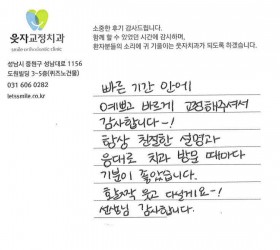 소중한 후기 감사드립니다.
함께 할 수 있었던 시간에 감사하며,
환자분들의 소리에 귀 기울이는 웃자치과가 되도록 하겠습니다.
웃자교정치과
성남시 중원구 성남대로 1156
도원빌딩 3~5층(퀴즈노건물)
031 606 0282
letssmile.co.kr
빠른 기간 안에
예쁘고 바르게 교정해주셔서
감사합니다~!
항상 친절한 설명과
응대로 치과 방문 때마다
기분이 좋았습니다.
활짝 웃고 다닐게요~!
선생님 감사합니다.